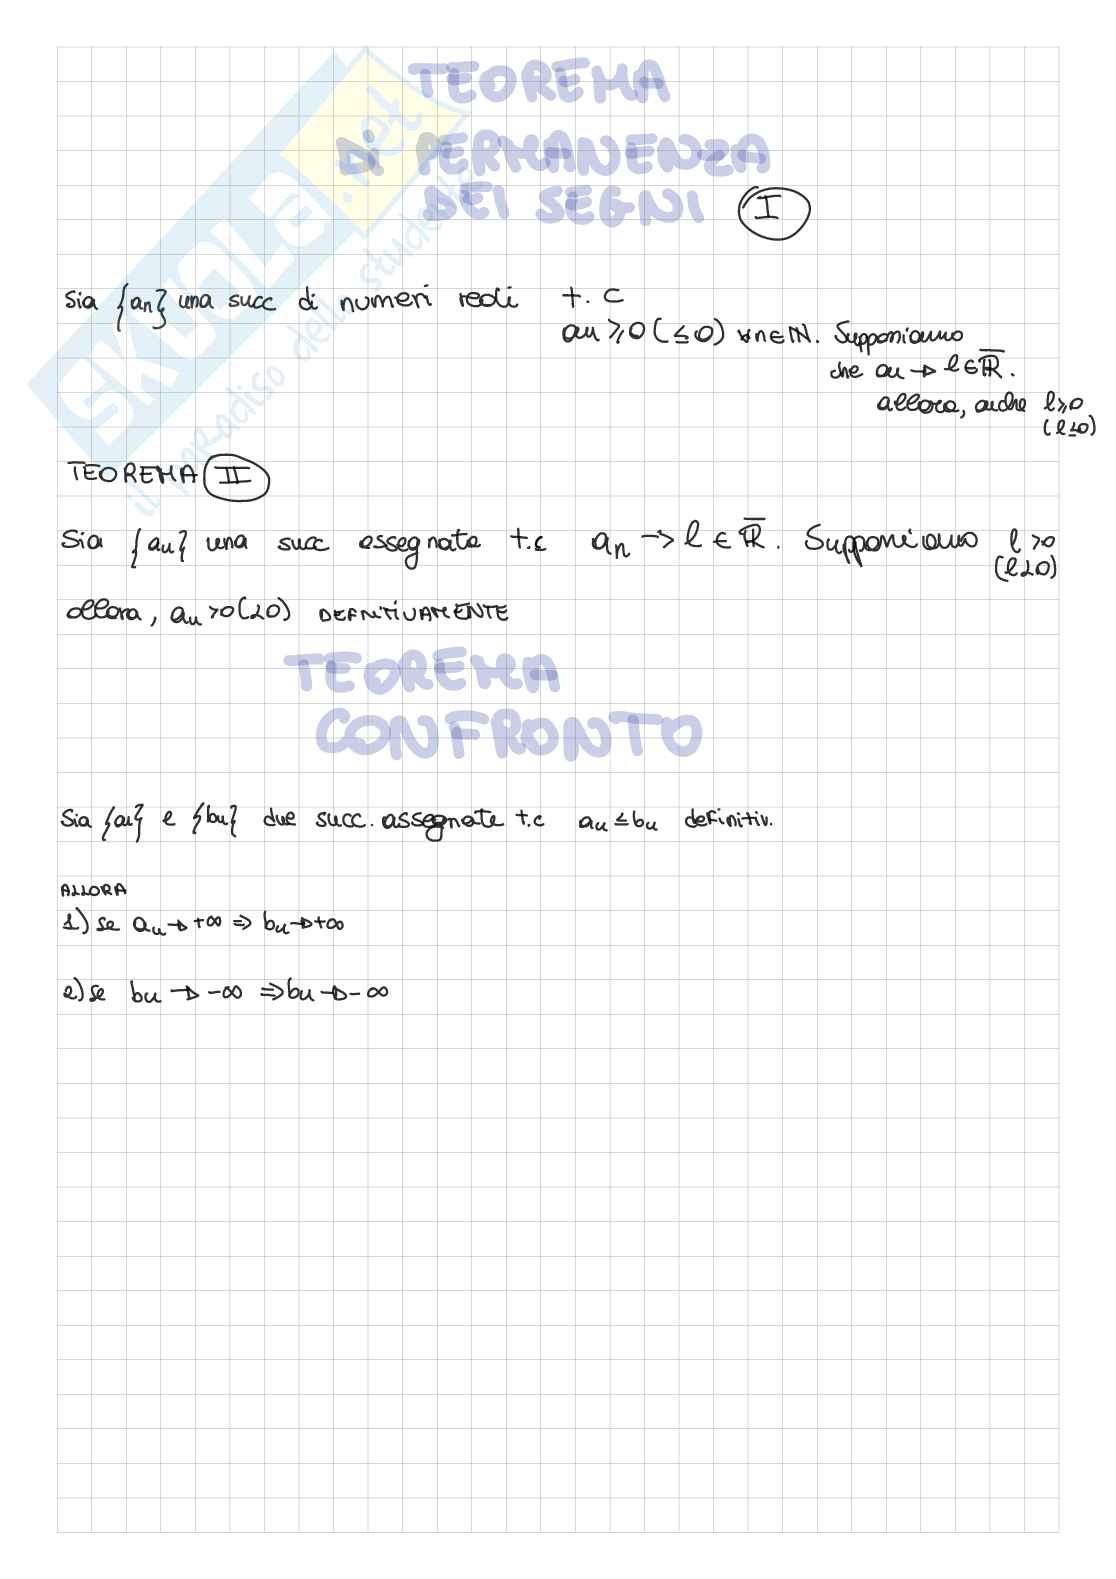 TEOREMA
Di PERMANENZA
DEI SEGNI I
SKUOLA.net
il paradiso dello studente
Sia {an} una succ di numeri reali t. c
an ≥ 0 (≤ 0) ∀n∈ℕ. Supponiamo
che an → l ∈ R̅.
allora, anche l≥0
(l≤0)
TEOREMA II
Sia {an} una succ assegnata t.c an → l ∈ R̅. Supponiamo l >0
(l<0)
allora, an >0 (<0) DEFINITIVAMENTE
TEOREMA
CONFRONTO
Sia {an} e {bn} due succ. assegnate t.c an ≤ bn definitiv.
ALLORA
1) se an → +∞ ⇒ bn → +∞
2) se bn → -∞ ⇒ bn → -∞